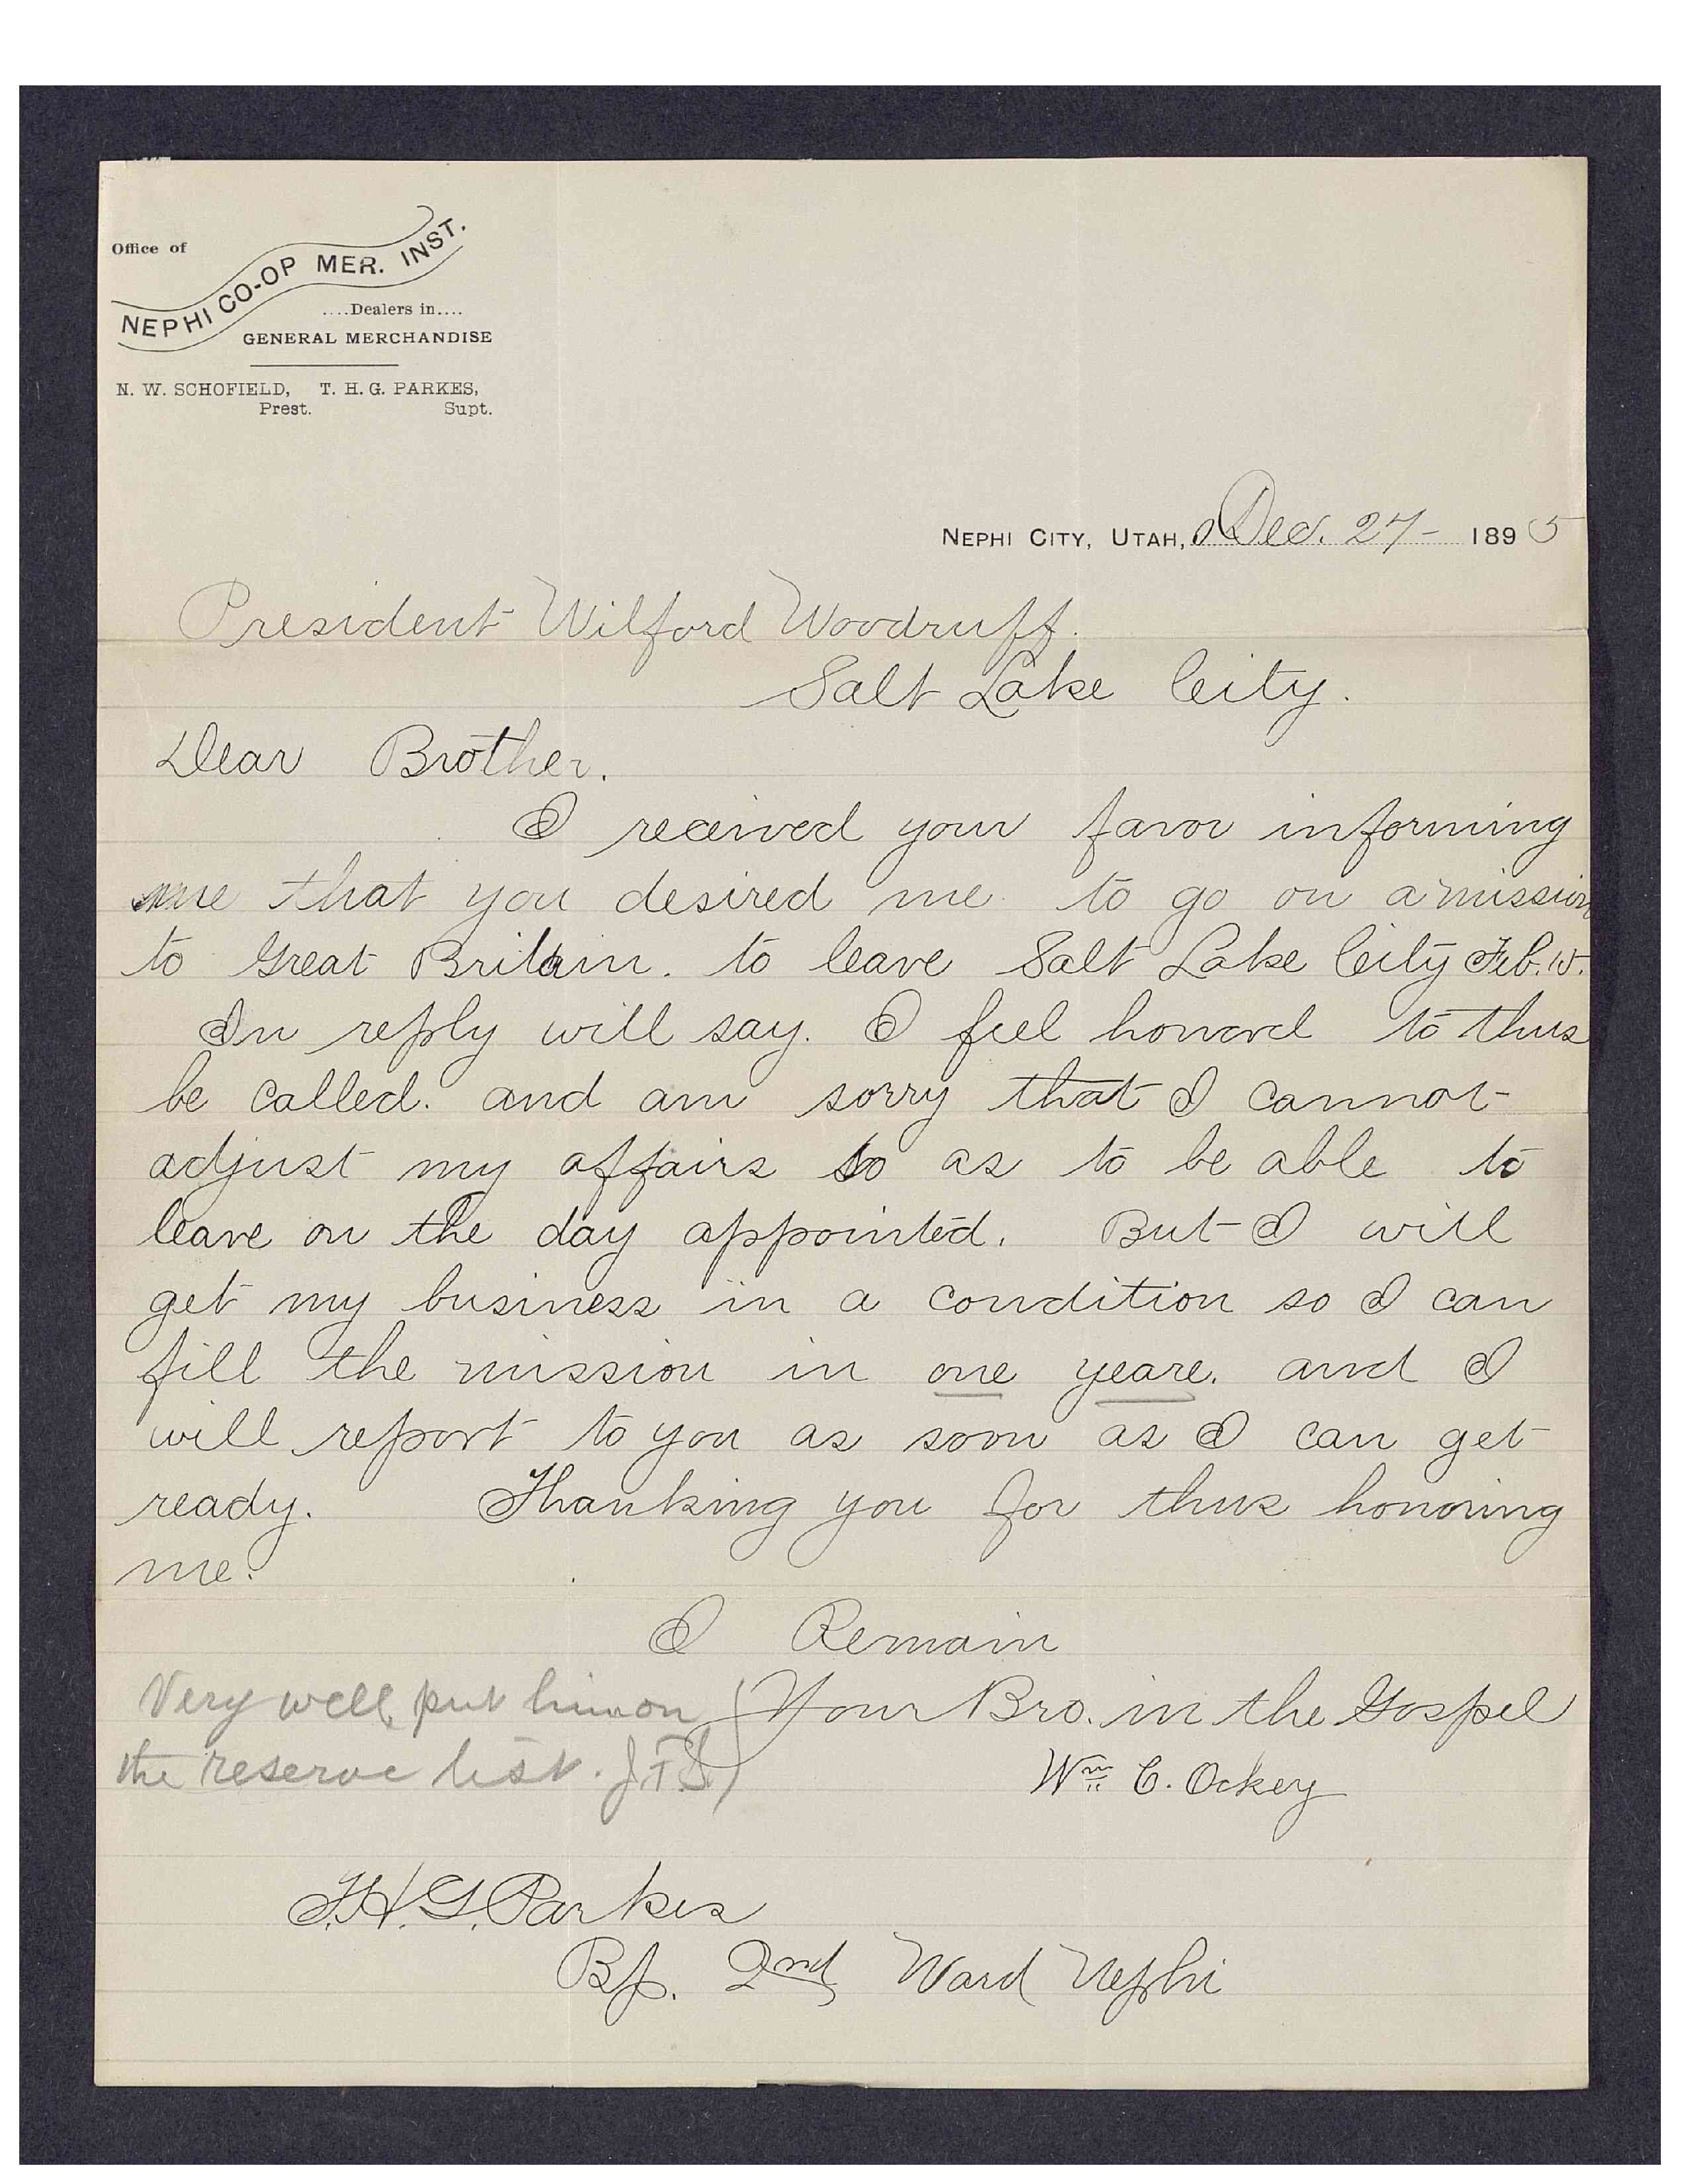 Office of
NEPHI CO-OP MER. INST.
....Dealers in....
GENERAL MERCHANDISE
N. W. SCHOFIELD, T. H. G. PARKES,
Prest. Supt.
NEPHI CITY, UTAH, Dec. 27- 1895
President Wilford Woodruff.
Salt Lake City.
Dear Brother.
I received your favor informing
me that you desired me to go on a mission
to Great Britain. to leave Salt Lake City Feb. 15.
In reply will say. I feel honord to thus
be called. and am sorry that I cannot
adjust my affairs so as to be able to
leave on the day appointed. But I will
get my business in a condition so I can
fill the mission in one yeare. and I
will report to you as soon as I can get
ready. Thanking you for thus honoring
me.
I Remain
Your Bro. in the Gospel
Wm C. Ockey
Very well, put him on
the reserve list. J.F.S.
T.H.G. Parkes
Bp. 2nd Ward Nephi